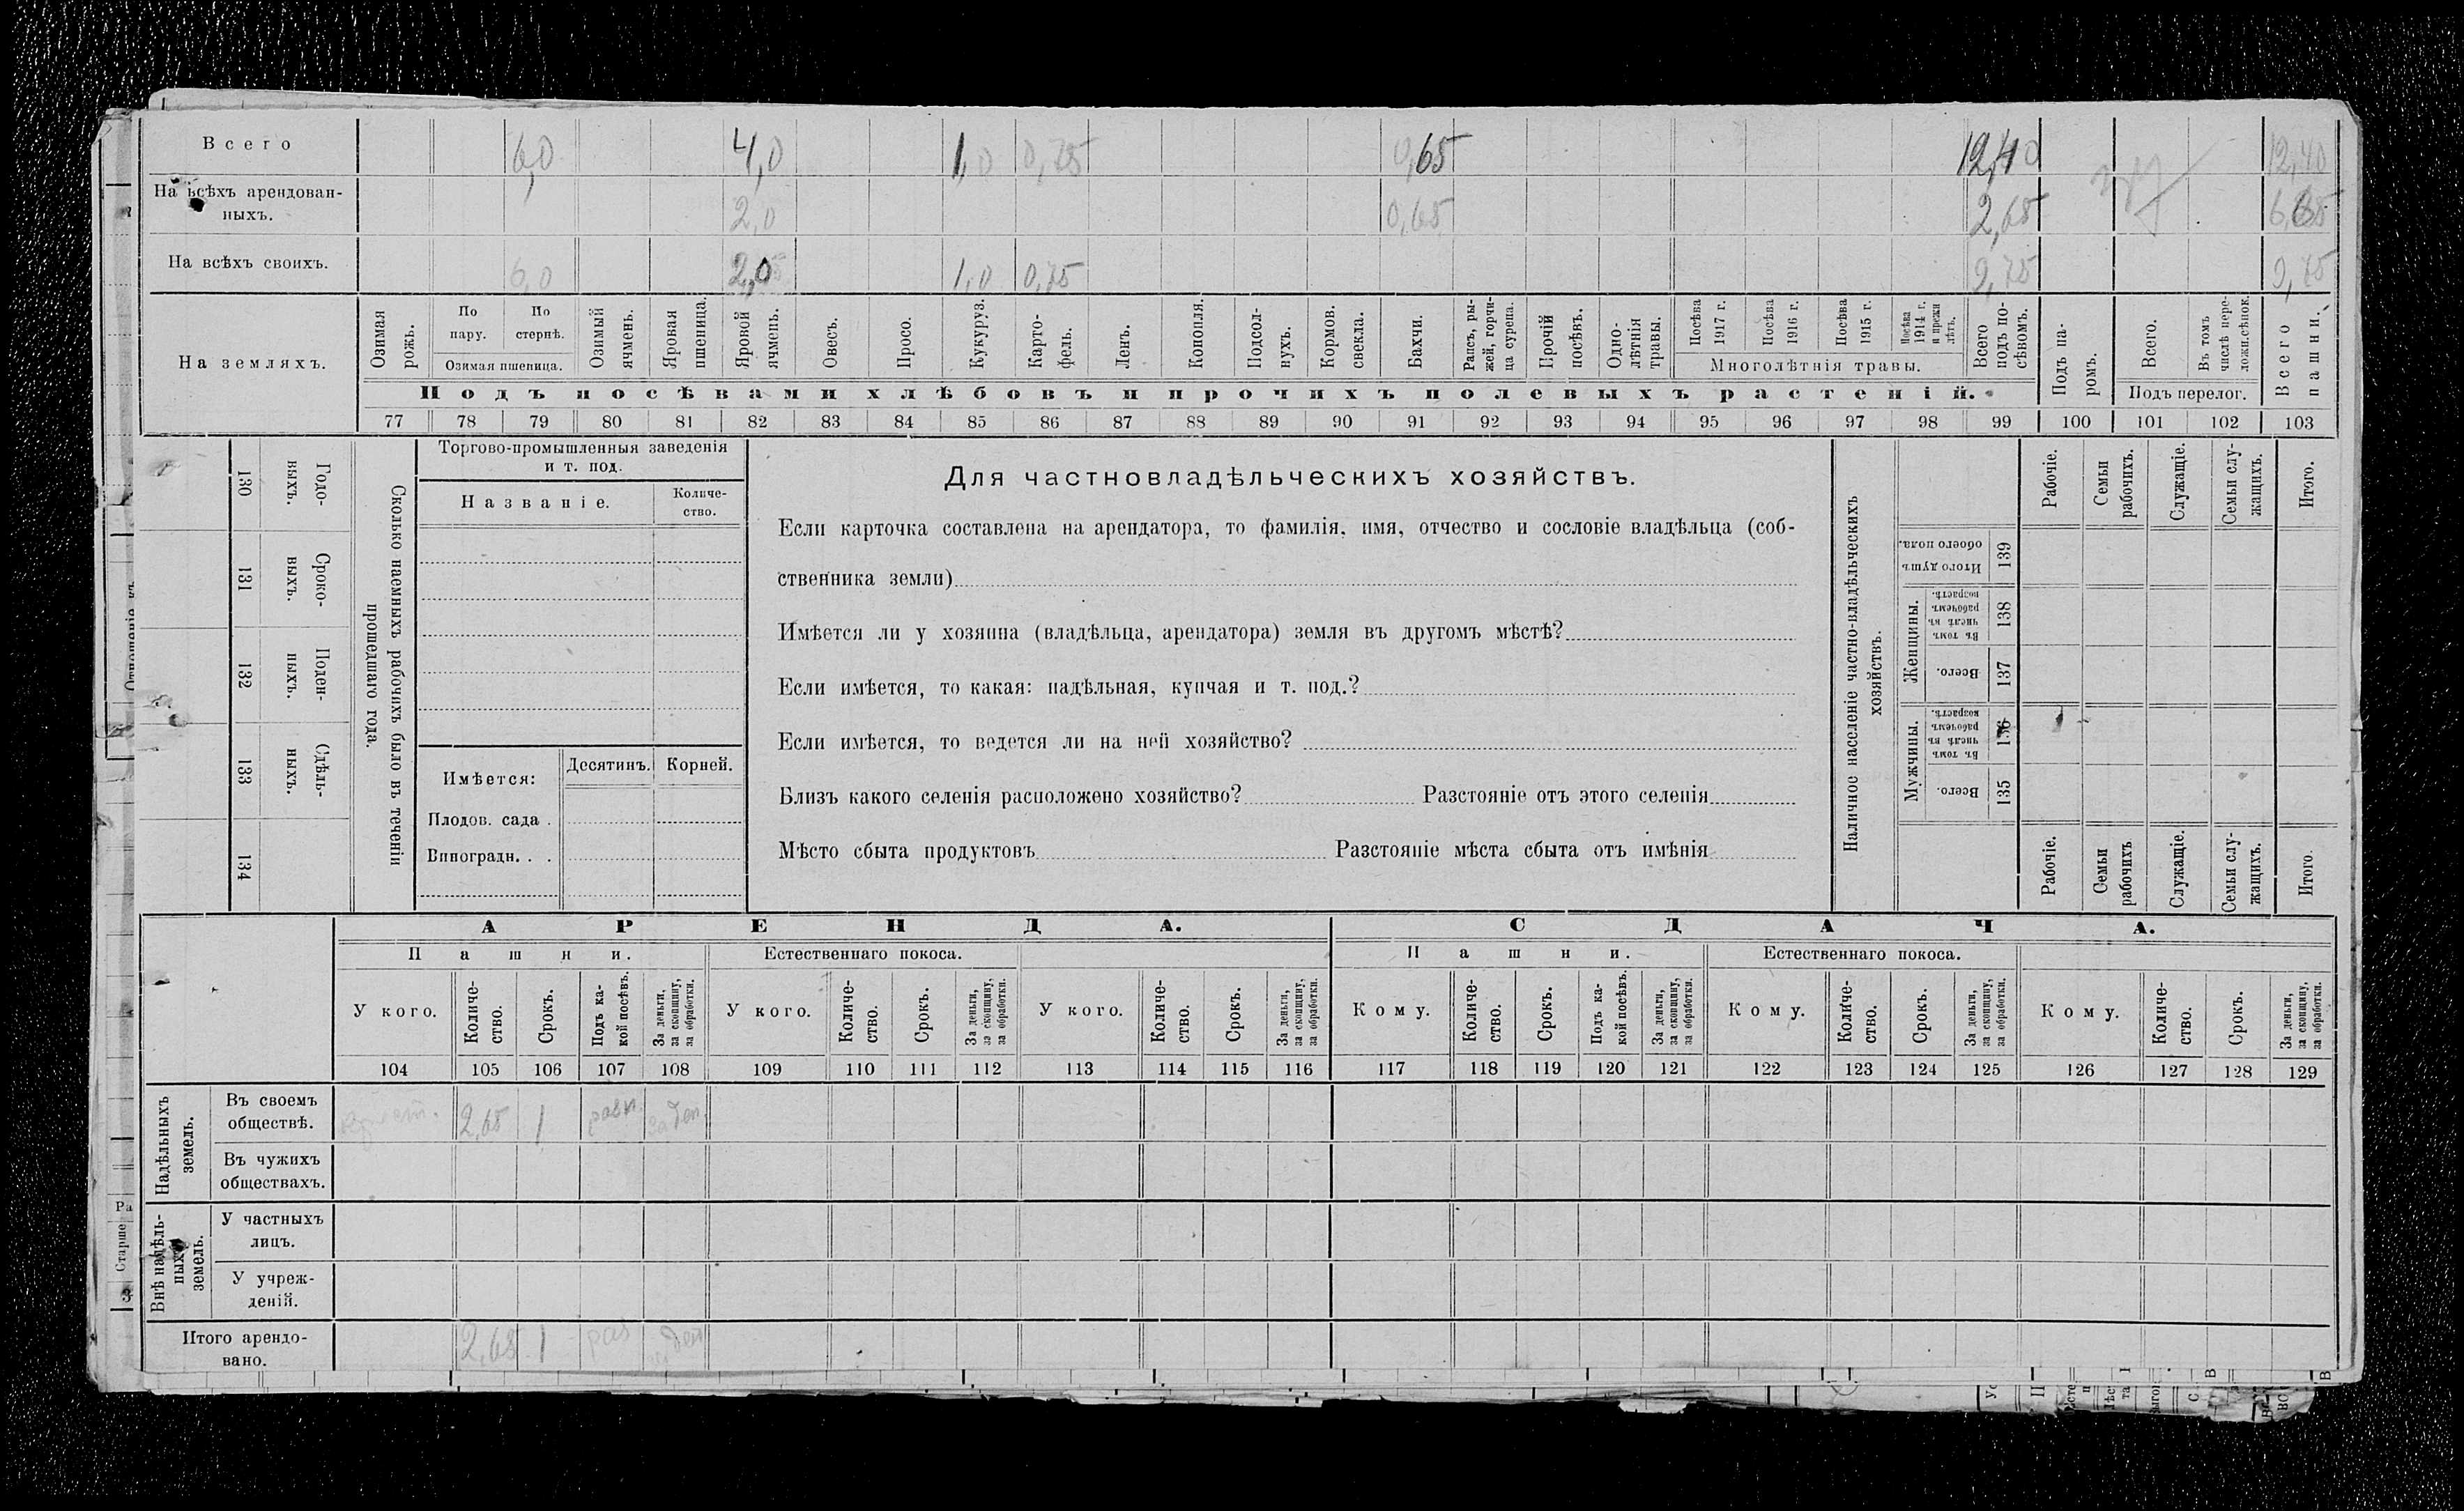 Всего 6,0 4,0 1,0 0,75 0,65 12,40 12,40
На всѣхъ арендован-
ныхъ. 2,0 0,65 2,65
На всѣхъ своихъ. 6,0 2,0 1,0 0,75 9,75 9,75
На земляхъ.
Озимая рожь.
По пару.
По стернѣ.
Озимая пшеница.
Озимый ячмень.
Яровая пшеница.
Яровой ячмень.
Овесъ.
Просо.
Кукуруз.
Карто-
фель.
Ленъ.
Конопля.
Подсол-
нухъ.
Кормов.
свекла.
Бахчи.
Рапсъ, ры-
жей, горчи-
ца сурепа.
Прочій
посѣвъ.
Одно-
лѣтнія
травы.
Посѣва
1917 г.
Посѣва
1916 г.
Посѣва
1915 г.
Посѣва
1914 г.
и прежн
лѣтъ.
Многолѣтнія травы.
Всего
подъ по-
сѣвомъ.
Подъ па-
ромъ.
Всего.
Въ томъ
числѣ пере-
ложн.сѣнок.
Подъ перелог.
Всего
пашни.
Подъ посѣвами хлѣбовъ и прочихъ полевыхъ растеній.
77 78 79 80 81 82 83 84 85 86 87 88 89 90 91 92 93 94 95 96 97 98 99 100 101 102 103
130 131 132 133 134
Годо-
выхъ.
Сроко-
ныхъ.
Поден-
ныхъ.
Сдѣль-
ныхъ.
Сколько наемныхъ рабочихъ было въ теченіи
прошедшаго года.
Торгово-промышленныя заведенія
и т. под.
Названіе.
Количе-
ство.
Имѣется:
Десятинъ. Корней.
Плодов. сада .
Виноградн. . .
Для частновладѣльческихъ хозяйствъ.
Если карточка составлена на арендатора, то фамилія, имя, отчество и сословіе владѣльца (соб-
ственника земли)
Имѣется ли у хозяина (владѣльца, арендатора) земля въ другомъ мѣстѣ?
Если имѣется, то какая: надѣльная, купчая и т. под.?
Если имѣется, то ведется ли на ней хозяйство?
Близъ какого селенія расположено хозяйство? Разстояніе отъ этого селенія
Мѣсто сбыта продуктовъ Разстояніе мѣста сбыта отъ имѣнія
Наличное населеніе частно-владѣльческихъ
хозяйствъ.
Рабочіе.
Семьи
рабочихъ.
Служащіе.
Семьи слу-
жащихъ.
Итого.
Итого душъ
обоего пола.
139
Женщины.
Въ томъ
числѣ въ
рабочемъ
возрастѣ.
138
Всего.
137
Мужчины.
Въ томъ
числѣ въ
рабочемъ
возрастѣ.
136
Всего.
135
Рабочіе.
Семьи
рабочихъ
Служащіе.
Семьи слу-
жащихъ.
Итого.
АРЕНДА. СДАЧА.
Пашни. Естественнаго покоса. Пашни. Естественнаго покоса.
У кого.
Количе-
ство.
Срокъ.
Подъ ка-
кой посѣвъ.
За деньги,
за скопщину,
за обработки.
У кого.
Количе-
ство.
Срокъ.
За деньги,
за скопщину,
за обработки.
У кого.
Количе-
ство.
Срокъ.
За деньги,
за скопщину,
за обработки.
Кому.
Количе-
ство.
Срокъ.
Подъ ка-
кой посѣвъ.
За деньги,
за скопщину,
за обработки.
Кому.
Количе-
ство.
Срокъ.
За деньги,
за скопщину,
за обработки.
Кому.
Количе-
ство.
Срокъ.
За деньги,
за скопщину,
за обработки.
104 105 106 107 108 109 110 111 112 113 114 115 116 117 118 119 120 121 122 123 124 125 126 127 128 129
Надѣльныхъ
земель.
Въ своемъ
обществѣ. 2,65 1 за ден.
Въ чужихъ
обществахъ.
Внѣ надѣль-
ныхъ
земель.
У частныхъ
лицъ.
У учреж-
деній.
Итого арендо-
вано. 2,65 1
Старше